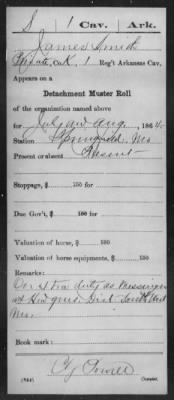 S | 1 Cav. | Ark.
James Smith
Private, Co. K, 1 Reg't Arkansas Cav.
Appears on a
Detachment Muster Roll
of the organization named above
for July and Aug, 1864.
Station Springfield, Mo
Present or absent Present
Stoppage, $ 100 for
Due Gov't, $ 100 for
Valuation of horse, $ 100
Valuation of horse equipments, $ 100
Remarks:
On extra duty as Messenger
at Hd qrs. Dist South West
Mo.
Book mark:
(844)
Copyist.